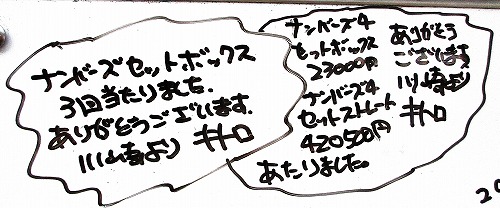 ナンバーズセットボックス
3回当たりました.
ありがとうございます.
川崎より キトロ
ナンバーズ4
セットボックス
23000円
ナンバーズ4
セットストレート
420500円
あたりました。
ありがとう
ございます
川崎より
キトロ